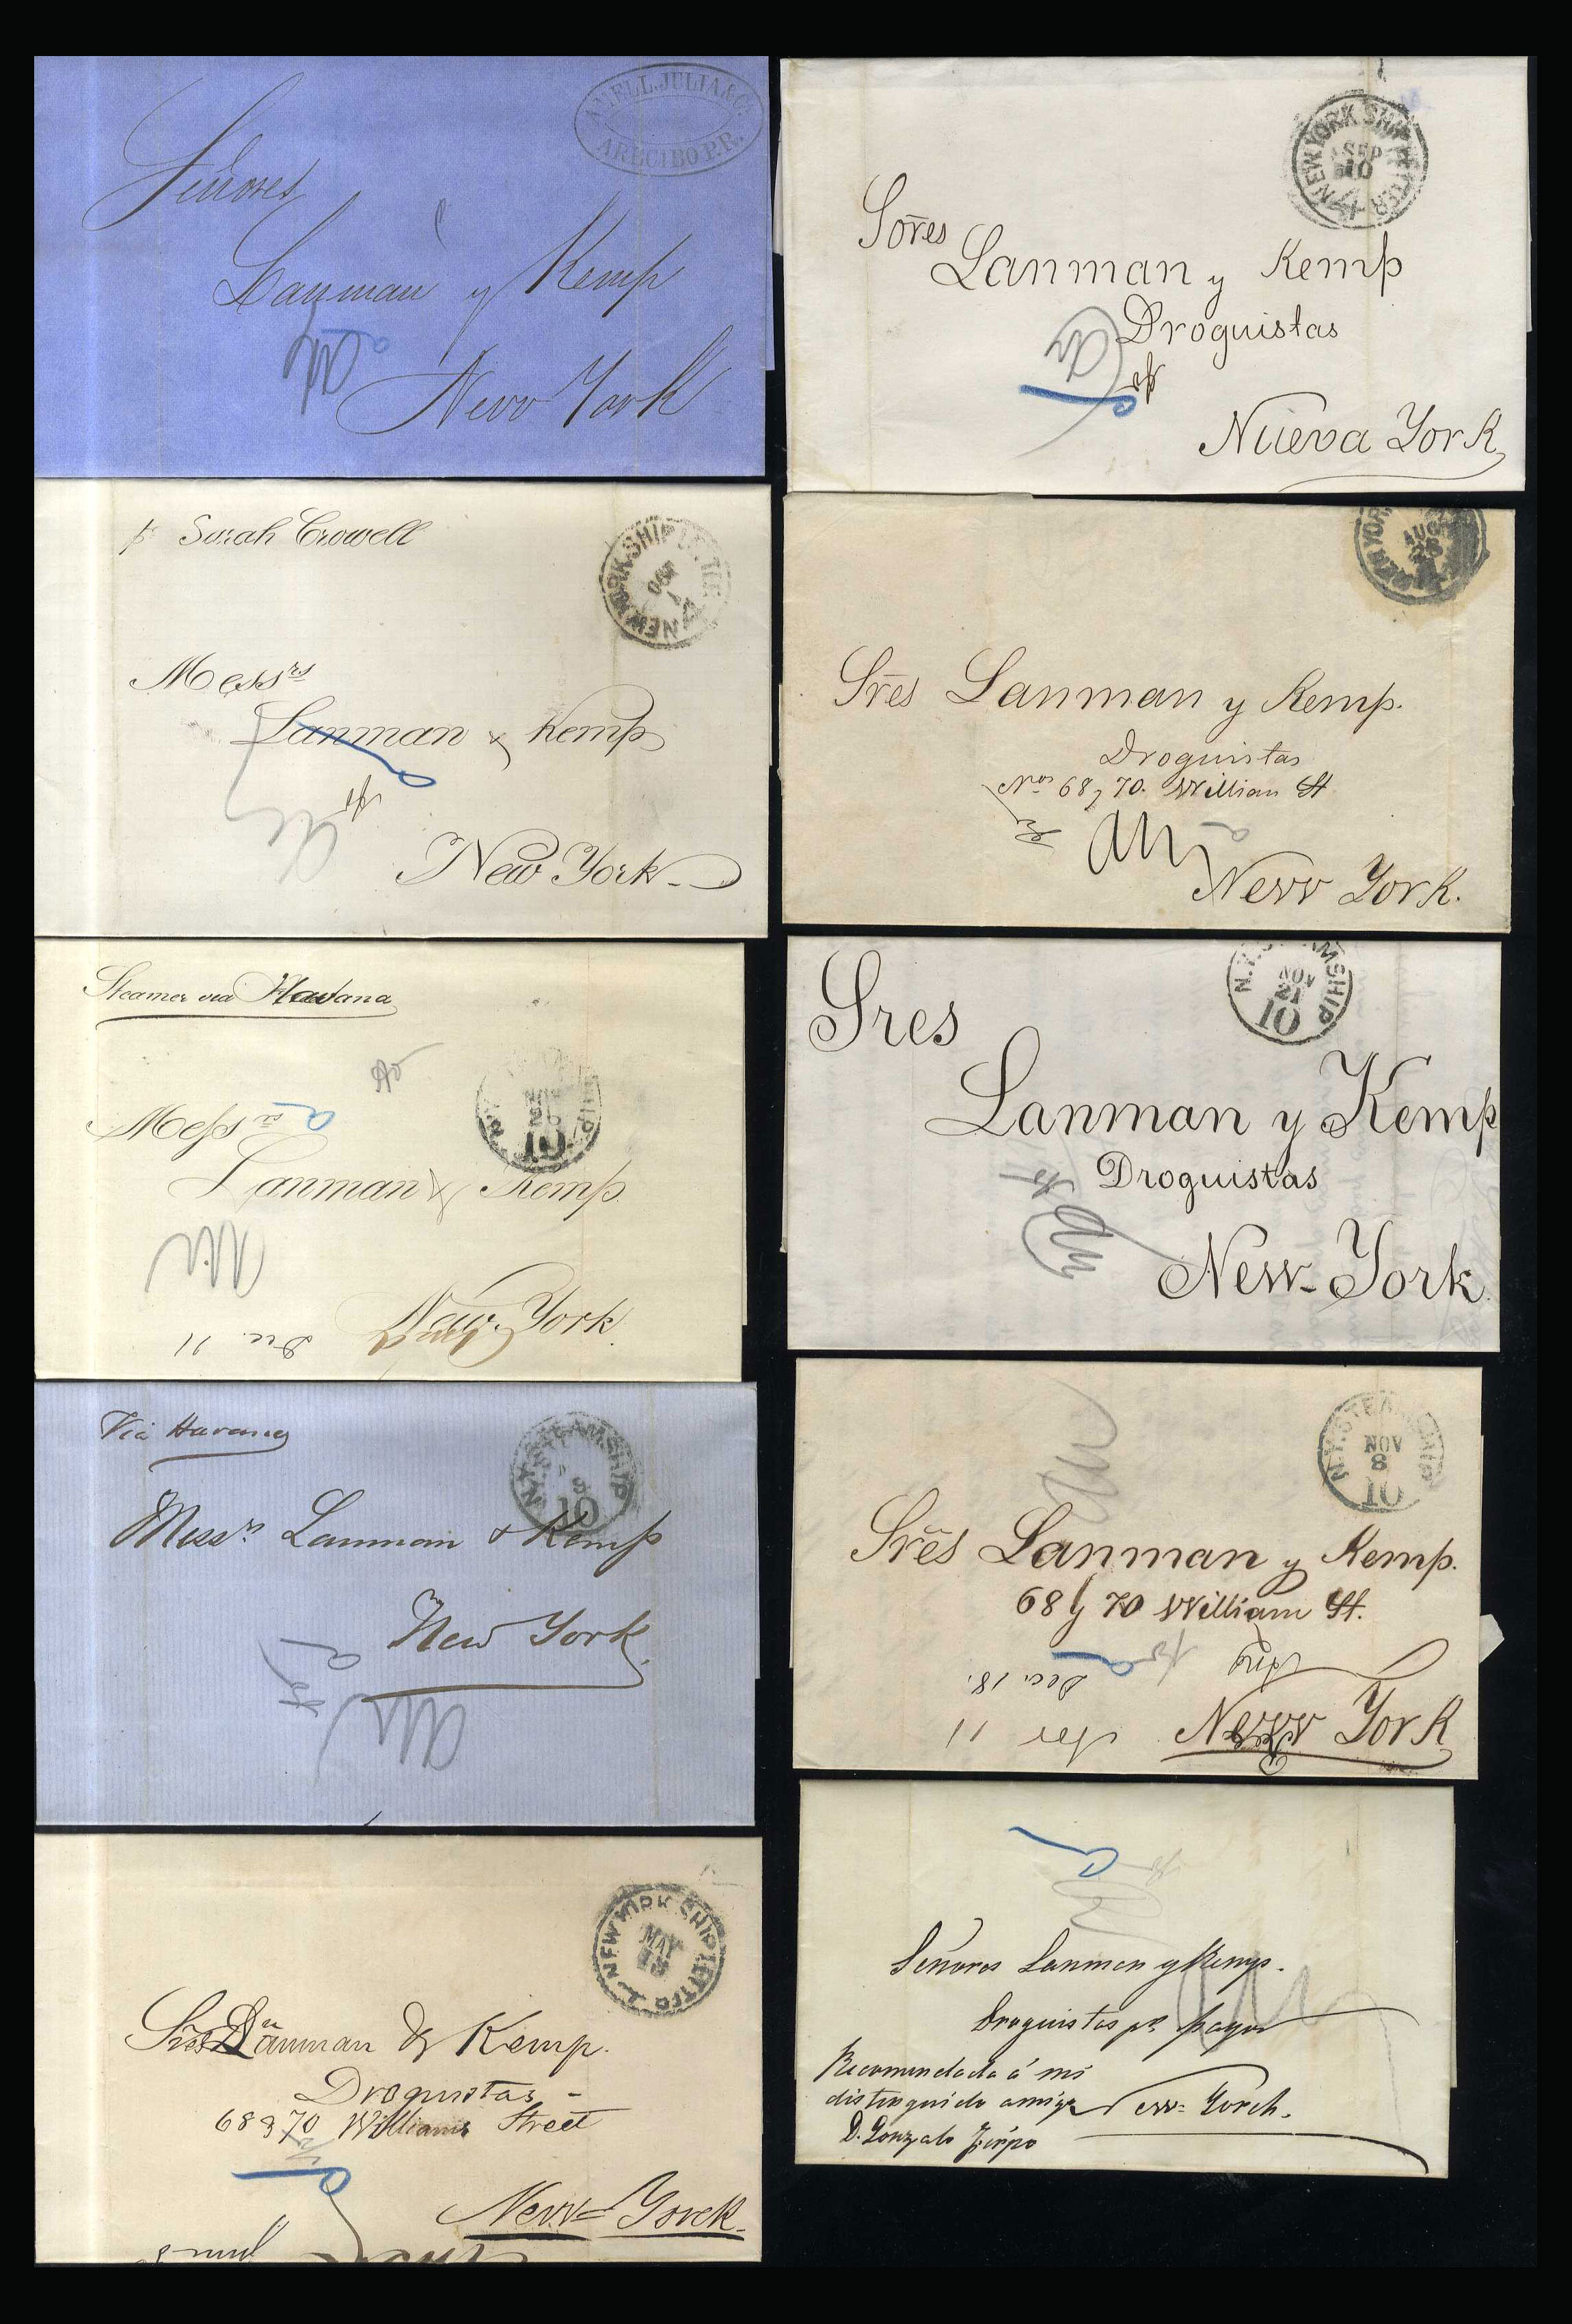 AMELL, JULIA & Co.
ARECIBO P.R.
Señores
Lanman y Kemp
New York
NEW YORK SHIP LETTER
SEP
10
Sores
Lanman y Kemp
Droguistas
Nueva York
p Sarah Crowell
NEW YORK SHIP LETTER
Messrs
Lanman & Kemp
New York
NEW YORK
AUG
Sres Lanman y Kemp.
Droguistas
Nos 68 y 70. William St
New York.
Steamer via Havana
10
Messrs
Lanman & Kemp.
New York.
Dec. 11
N.Y. STEAMSHIP
NOV
21
10
Sres
Lanman y Kemp
Droguistas
New-York.
Via Havana
N.Y. STEAMSHIP
10
Messrs Lanman & Kemp
New York.
N.Y. STEAMSHIP
NOV
8
10
Sres Lanman y Kemp.
68 y 70 William St.
Dec. 18.
New York
11
NEW YORK SHIP LETTER
MAY
Sres Lanman & Kemp.
Droguistas
68 y 70 Williams Street
New=Yorck.
Señores Lanman y Kemp.
Droguistas pr. mayor
Recomendada á mi
distinguido amigo
D. Gonzalo Jirpo
New=Yorch.